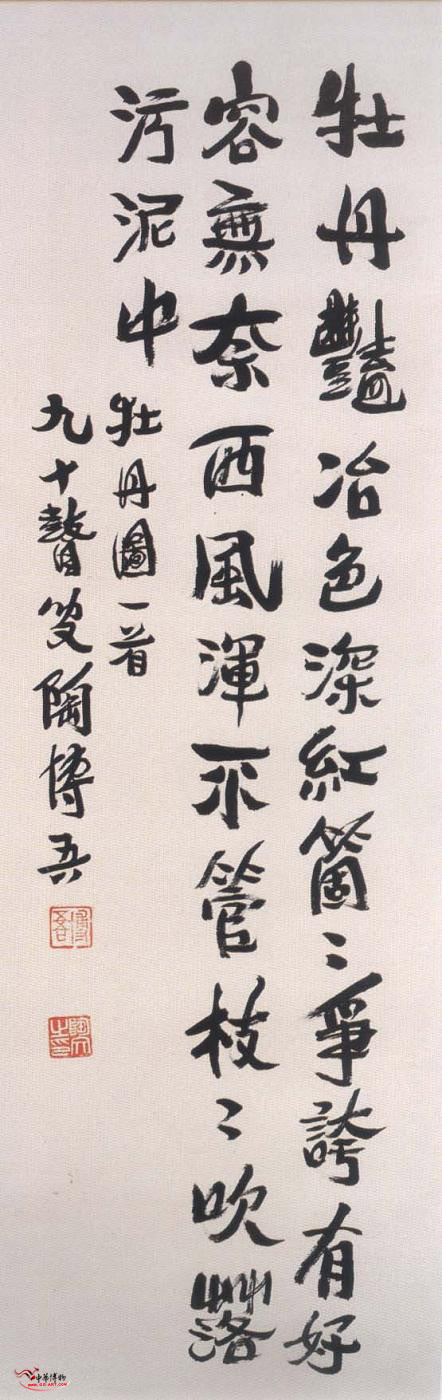 牡丹豔冶色深紅箇〻爭誇有好
容無奈西風渾不管枝〻吹落
污泥中
牡丹圖一首
九十瞽叟陶博吾
博吾
陶文之印
中華博物